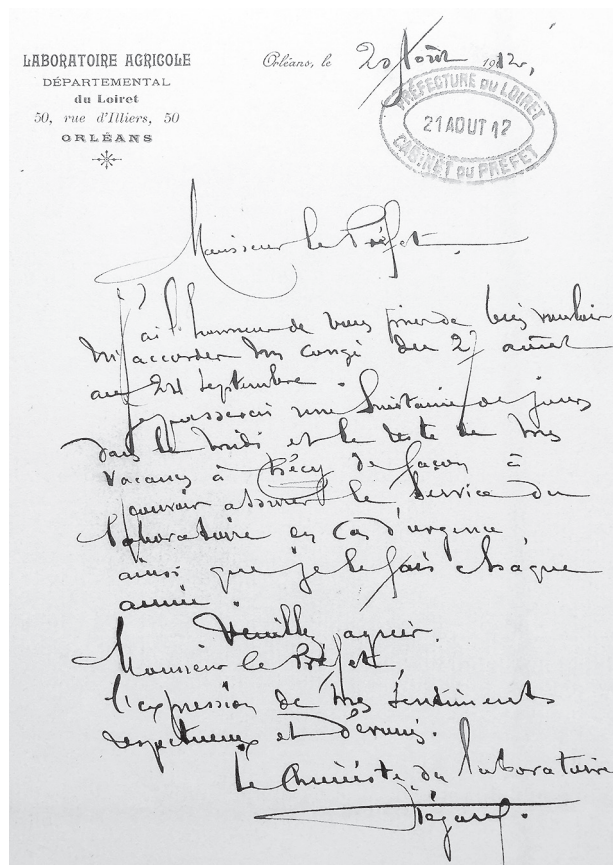 LABORATOIRE AGRICOLE
DÉPARTEMENTAL
du Loiret
50, rue d'Illiers, 50
ORLÉANS
Orléans, le 20 Août 1912,
PRÉFECTURE DU LOIRET
21 AOUT 12
CABINET DU PRÉFET
Monsieur le Préfet
J'ai l'honneur de vous prier de bien vouloir
m'accorder un congé du 27 août
au 24 Septembre.
Je passerai une huitaine de jours
dans le Midi et le reste de mes
vacances à Chécy de façon à
pouvoir assurer le service du
laboratoire en cas d'urgence
ainsi que je le fais chaque
année
Veuillez agréer,
Monsieur le Préfet,
l'expression de mes sentiments
respectueux et dévoués.
Le Chimiste du laboratoire